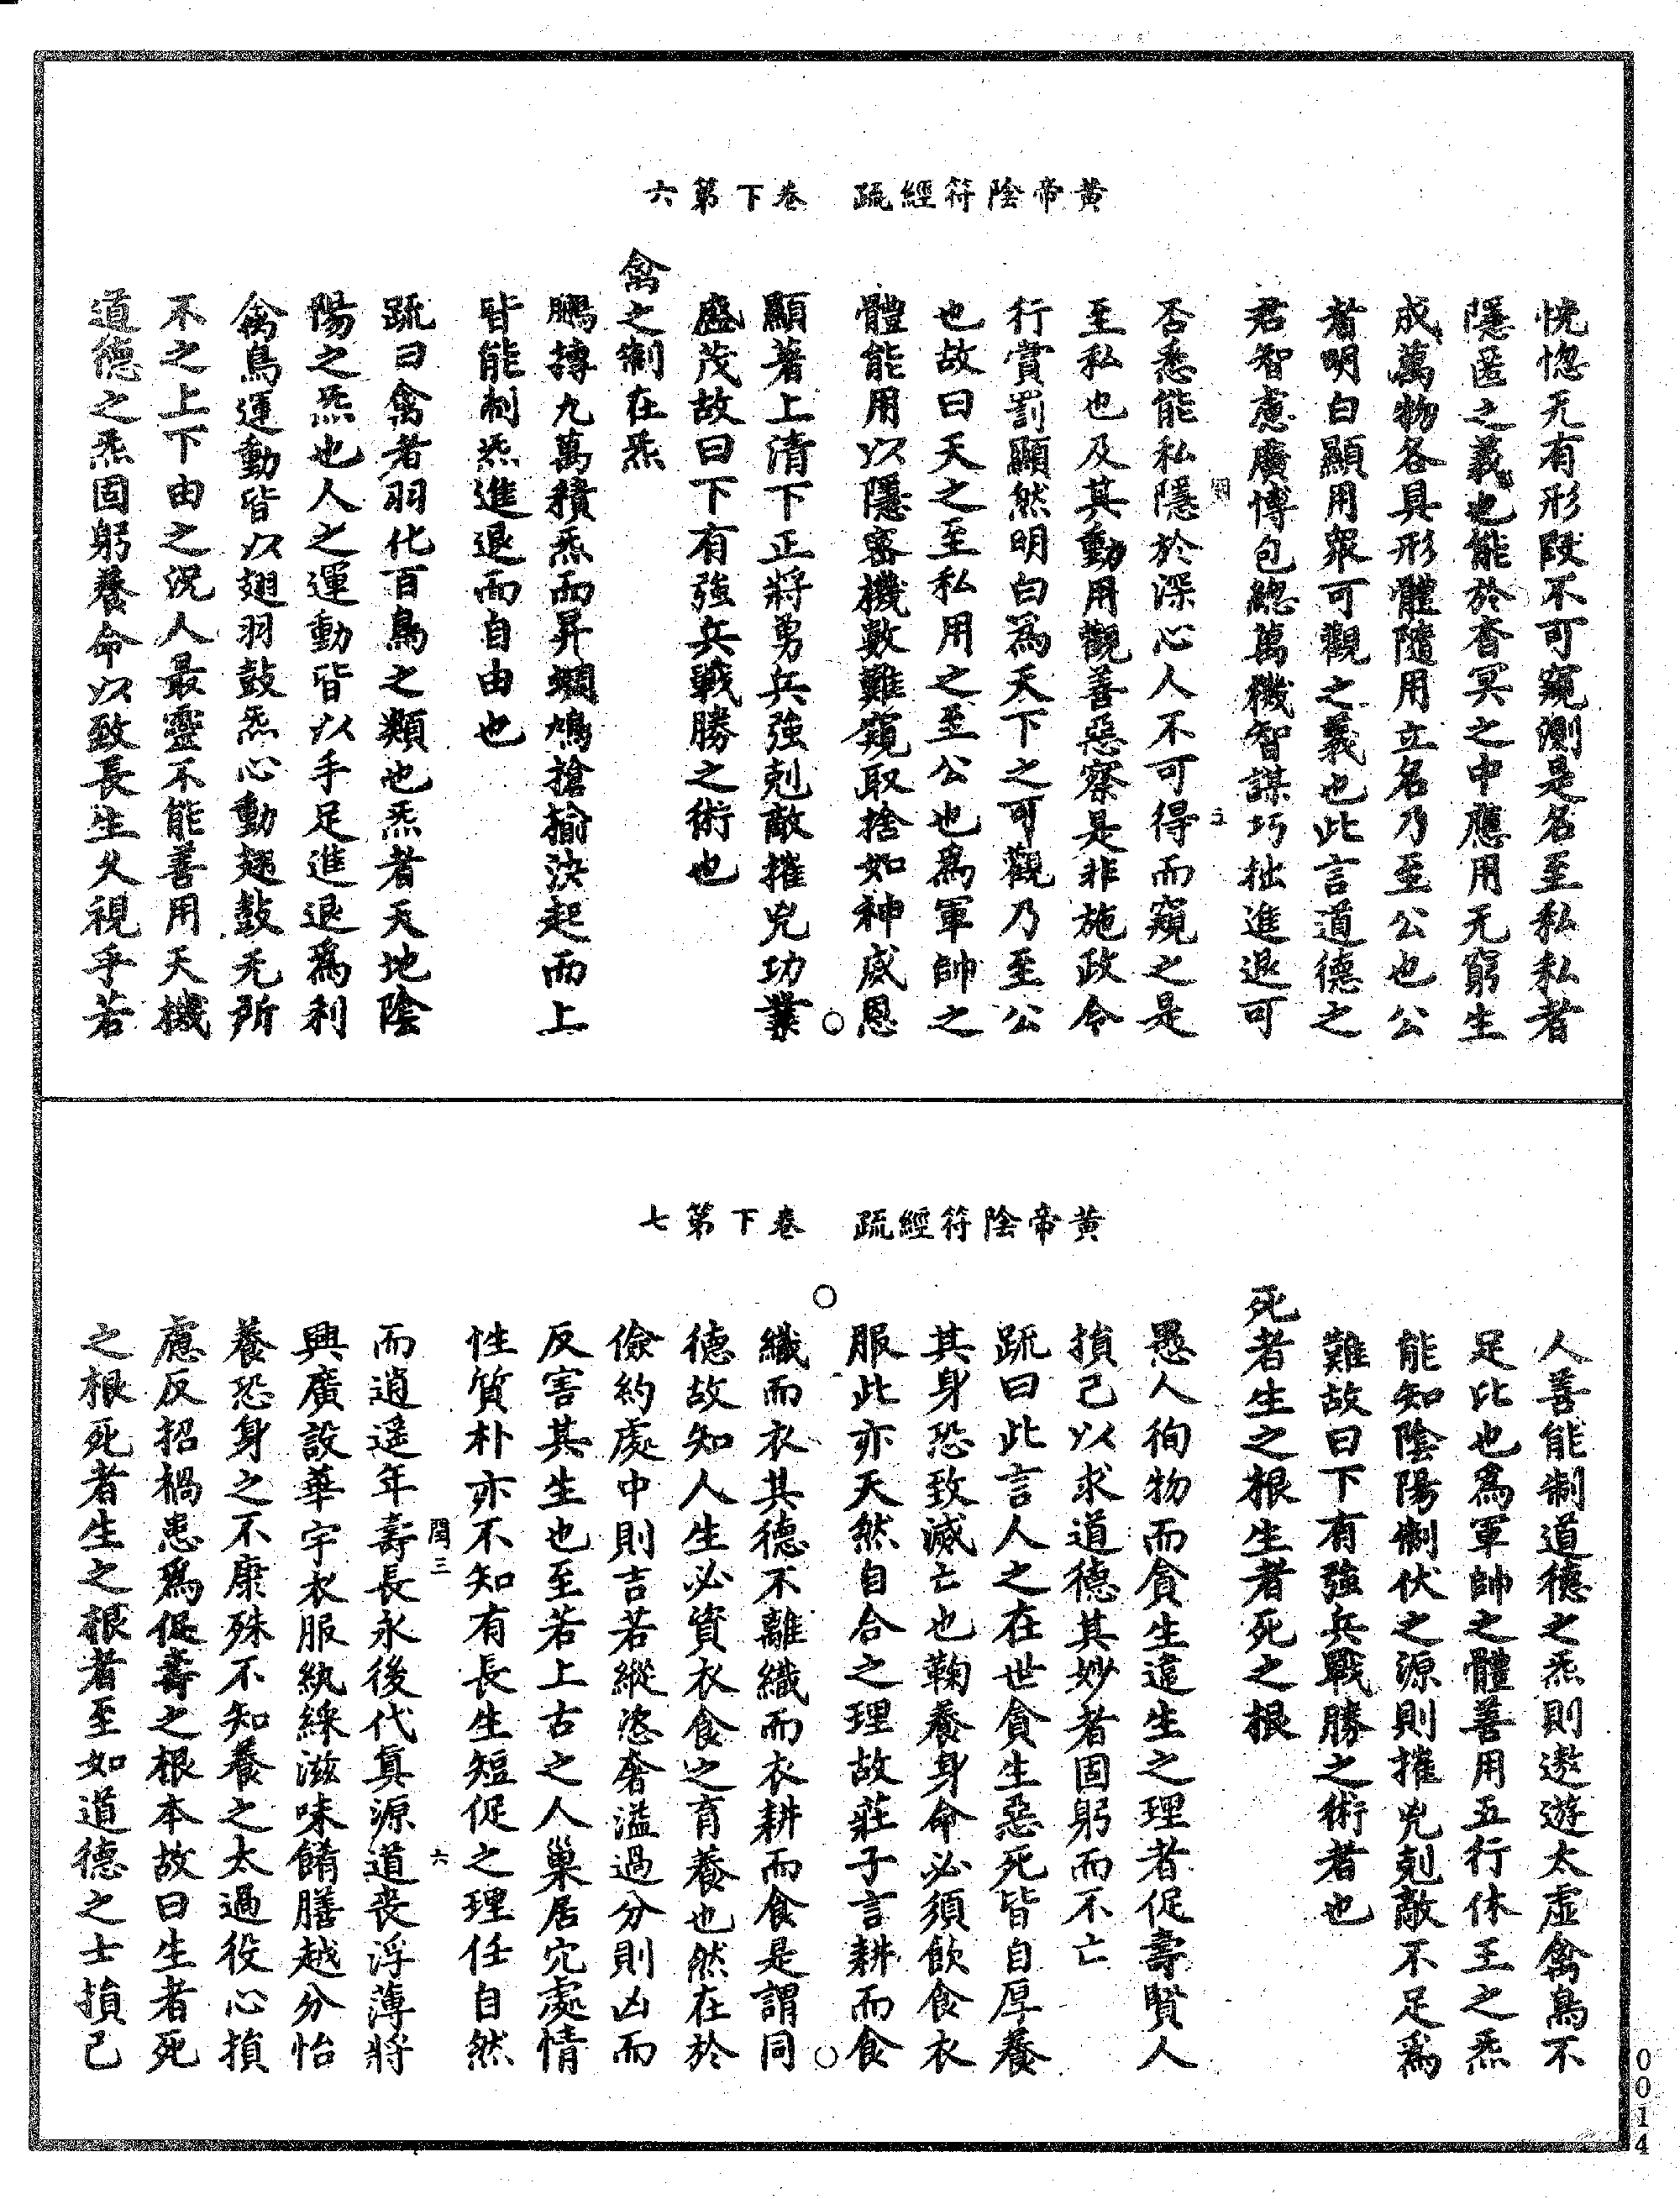 黃帝陰符經疏　卷下第六
恍惚无有形段不可窺測是名至私私者
隱匿之義也能於杳冥之中應用无窮生
成萬物各具形體隨用立名乃至公也公
者明白顯用眾可觀之義也此言道德之
君智慮廣博包總萬機智謀巧拙進退可
否悉能私隱於深心人不可得而窺之是
至私也及其動用觀善惡察是非施政令
行賞罰顯然明白為天下之可觀乃至公
也故曰天之至私用之至公也為軍帥之
體能用以隱密機數難窺取捨如神威恩
顯著上清下正將勇兵強剋敵摧兇功業
盛茂故曰下有強兵戰勝之術也
禽之制在炁
鵬摶九萬積炁而昇蜩鳩搶揄決起而上
皆能制炁進退而自由也
疏曰禽者羽化百鳥之類也炁者天地陰
陽之炁也人之運動皆以手足進退為利
禽鳥運動皆以翅羽鼓炁心動翅鼓无所
不之上下由之況人最靈不能善用天機
道德之炁固躬養命以致長生久視乎若
黃帝陰符經疏　卷下第七
人善能制道德之炁則遨遊太虛禽鳥不
足比也為軍帥之體善用五行休王之炁
能知陰陽制伏之源則摧兇剋敵不足為
難故曰下有強兵戰勝之術者也
死者生之根生者死之根
愚人徇物而貪生違生之理者促壽賢人
損己以求道德其妙者固躬而不亡
疏曰此言人之在世貪生惡死皆自厚養
其身恐致滅亡也鞠養身命必須飲食衣
服此亦天然自合之理故莊子言耕而食
織而衣其德不離織而衣耕而食是謂同
德故知人生必資衣食之育養也然在於
儉約處中則吉若縱恣奢溢過分則凶而
反害其生也至若上古之人巢居穴處情
性質朴亦不知有長生短促之理任自然
閏三　六
而逍遙年壽長永後代真源道喪浮薄將
興廣設華宇衣服紈綵滋味餚膳越分怡
養恐身之不康殊不知養之太過役心損
慮反招禍患為促壽之根本故曰生者死
之根死者生之根者至如道德之士損己
0014